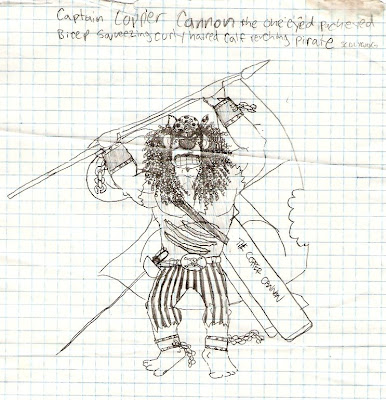 Captain Copper Cannon the one eyed
Bicep squeezing curly haired calf Pirate
THE COPPER CANNON